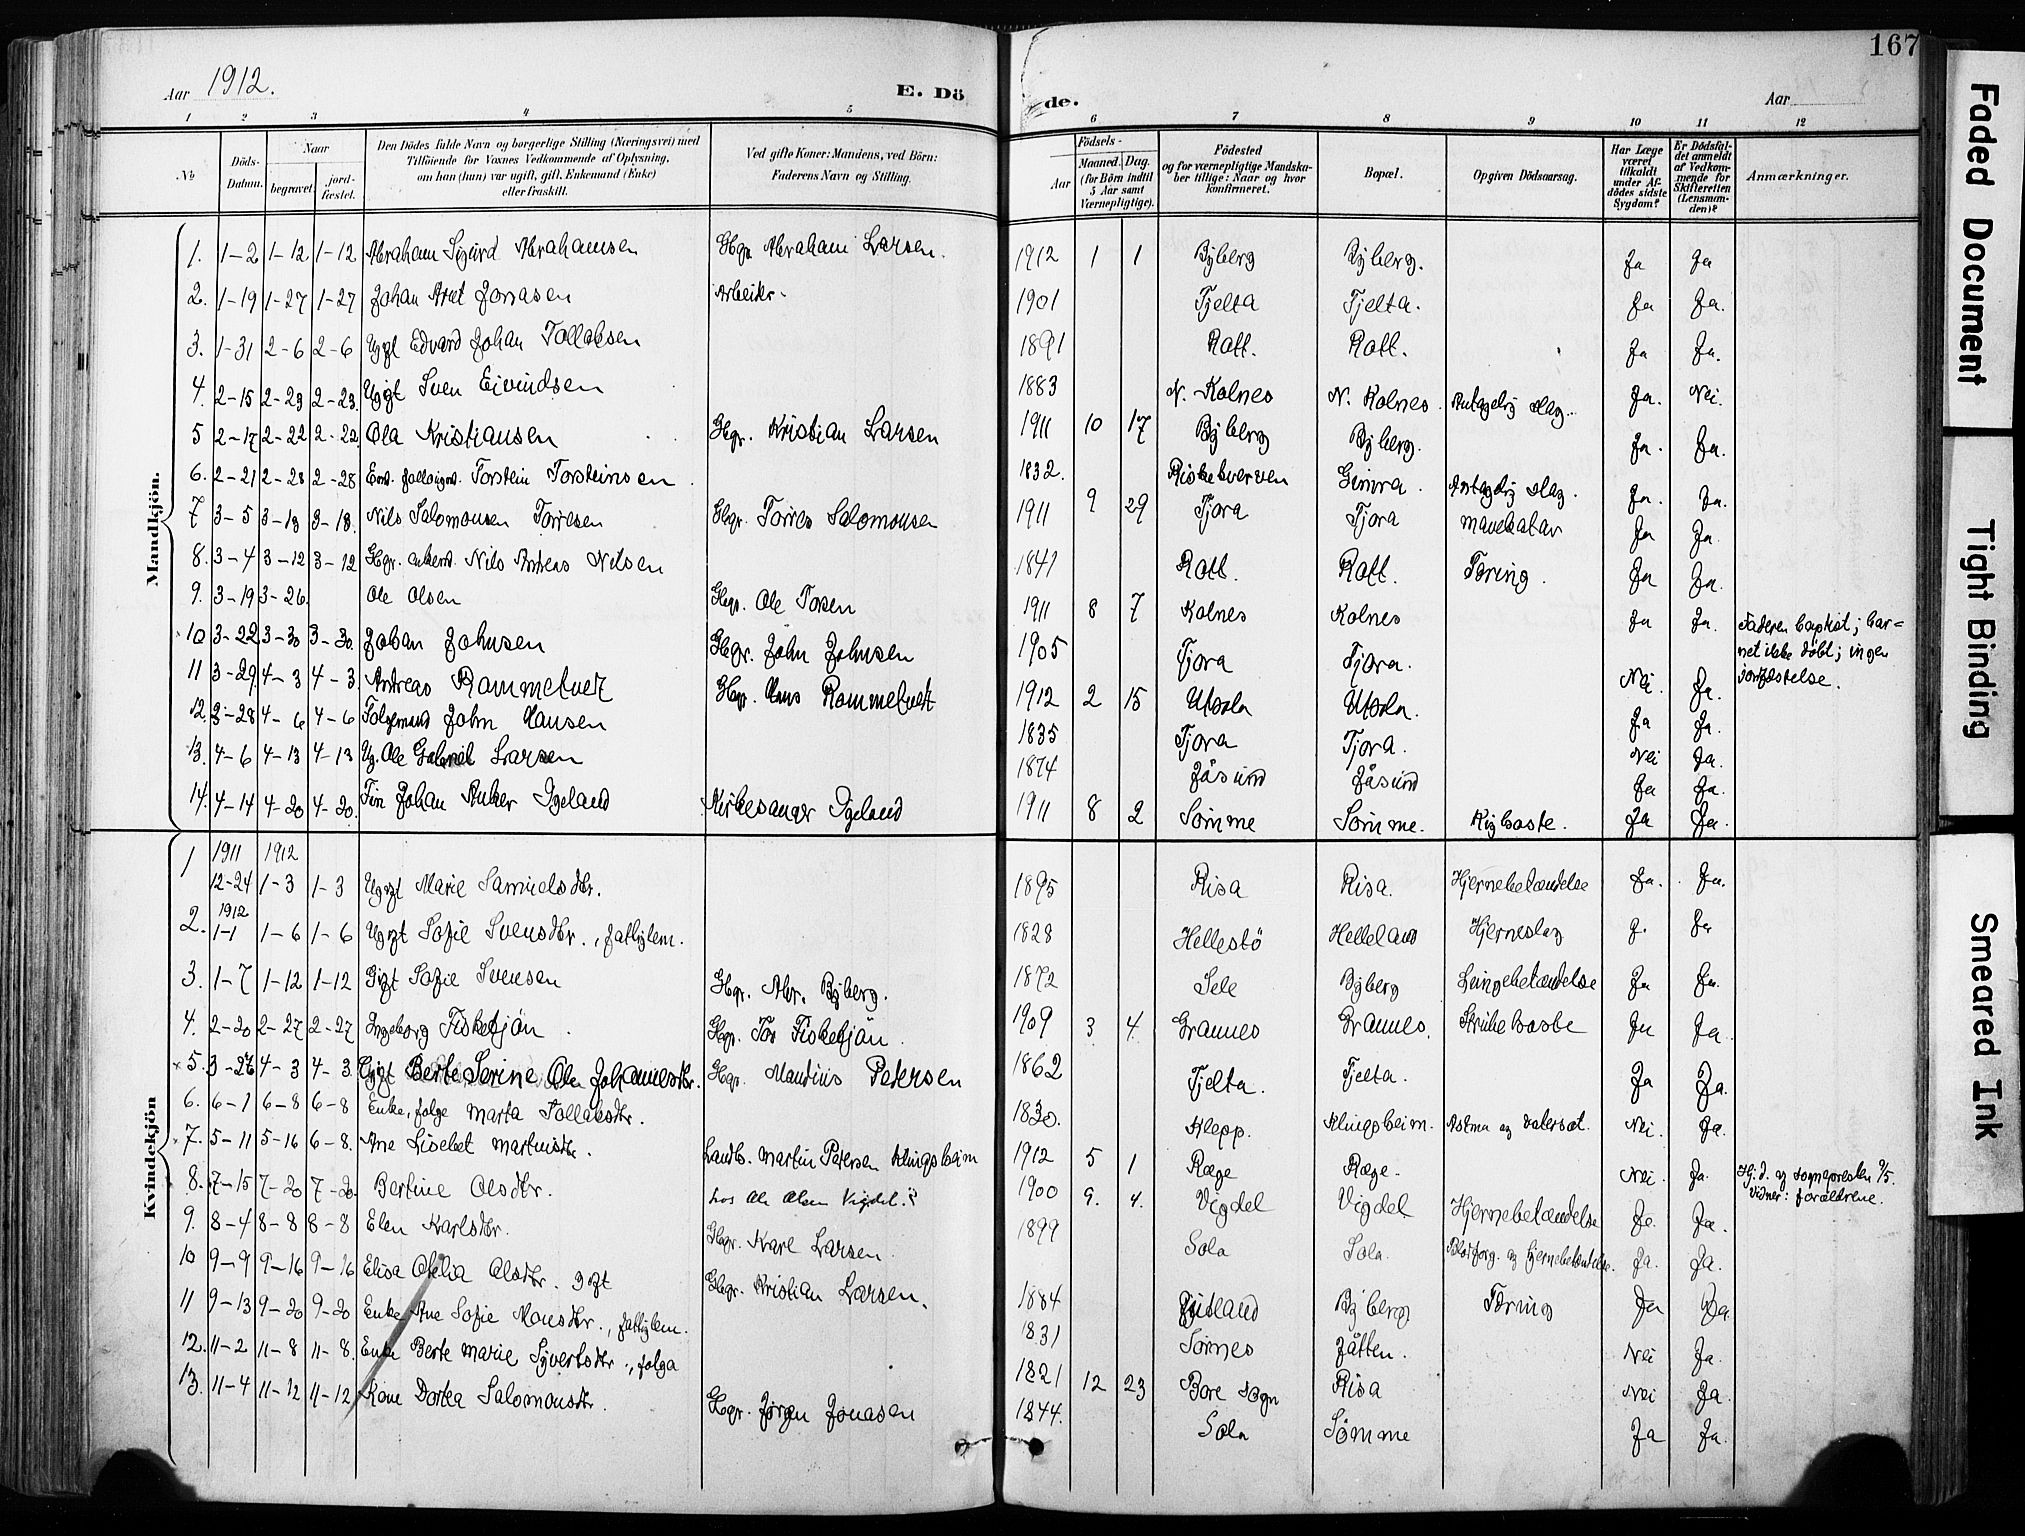 167
Aar 1912.
E. Dö
de.
Aar
1 2 3 4 5 6 7 8 9 10 11 12
No
Döds-Datum.
Naar
begravet.
jord-fæstet.
Den Dödes fulde Navn og borgerlige Stilling (Næringsvei) med
Tilföiende for Voxnes Vedkommende af Oplysning,
om han (hun) var ugift, gift, Enkemand (Enke)
eller fraskilt.
Ved gifte Koner: Mandens, ved Börn:
Faderens Navn og Stilling.
Aar
Födsels-
Maaned. Dag.
(for Börn indtil
5 Aar samt
Værnepligtige).
Födested
og for værnepligtige Mandska-
ber tillige: Naar og hvor
konfirmeret.
Bopæl.
Opgiven Dödsaarsag.
Har Læge
været
tilkaldt
under Af-
dödes sidste
Sygdom?
Er Dödsfal-
det anmeldt
af Vedkom-
mende for
Skifteretten
(Lensman-
den)?
Anmærkninger.
Mandkjön.
1. 1-2 1-12 1-12 Abraham Sigurd Abrahamsen Gbgr. Abraham Larsen. 1912 1 1 Byberg Byberg. Ja Ja
2. 1-19 1-27 1-27 Johan Axel Jonasen Arbeider 1901 Tjelta Tjelta. Ja Ja.
3. 1-31 2-6 2-6 Ugft Edvard Johan Tollaksen 1891 Rott. Rott. Ja Ja.
4. 2-15 2-23 2-23. Ugift Sven Eivindsen 1883 N. Kolnes N. Kolnes. slag. Ja. Nei.
5 2-17 2-22 2-22 Ola Kristiansen Gbgr. Kristian Larsen 1911 10 17 Byberg Byberg. Ja. Ja.
6. 2-21 2-28 2-28 Torstein Torsteinsen 1832. Gimra. Antagelig slag. Ja. Ja.
7 3-5 3-13 3-13. Nils Salomonsen Torresen Gbgr. Torres Salomonsen 1911 9 29 Tjora Tjora mavekatar Ja Ja.
8. 3-4 3-12 3-12 Gbgr. enkem. Nils Andreas Nilsen 1841 Rott. Rott. Tæring. Ja Ja.
9. 3-19 3-26. Ole Olsen Gbgr. Ole Tosen 1911 8 7 Kolnes Kolnes Ja Ja. Faderen baptist; bar=
net ikke döbt; ingen
jordfæstelse.
10 3-22 3-30 3-30. Johan Johnsen Gbgr. John Johnsen 1905 Tjora Tjora. Nei. Ja.
11 3-29 4-3 4-3. Andreas Rommetvedt Gbgr. Hans Rommetvedt 1912 2 15 Utsola Utsola. Ja Ja.
12. 3-28 4-6 4-6 Folgemand John Hansen 1835 Tjora Tjora. Nei Ja.
13. 4-6 4-13 4-13 Ug. Ole Gabriel Larsen 1874 Jåsund Jåsund Ja Ja.
14. 4-14 4-20 4-20. Fin Johan Anker Igeland Kirkesanger Igeland 1911 8 2 Sömme Sömme. Kighoste. Ja Ja.
Kvindekjön
1 1911 12-24 1912 1-3 1-3 Ugft Marie Samuelsdtr. 1895 Risa Risa. Hjernebetændelse Ja. Ja.
2. 1912 1-1 1-6 1-6 Ugft Sofie Svensdtr., fattiglem. 1828 Hellestö Helleland Hjerneslag J. Ja
3. 1-7 1-12 1-12 Gift Sofie Svensen Gbgr. Abr. Byberg. 1872 Sele Byberg Lungebetændelse Ja Ja.
4. 2-20 2-27 2-27 Ingeborg Fisketjön Gbgr. Tor Fisketjön. 1909 3 4 Grannes Grannes. Strubehoste Ja Ja.
5. 3-27 4-3 4-3. Gift Berte Serine Ole Johannesdtr. Gbgr. Mandius Petersen 1862 Tjelta. Tjelta. Ja Ja.
6. 6-1 6-8 6-8 Enke, folge Marta Tollaksdtr. 1830. Klepp. Klingsheim. Astma og vatersot. Nei. Ja.
7. 5-11 5-16 6-8. Ane Lisebet Martinsdtr. Landh. Martin Petersen Klingsheim 1912 5 1 Ræge Ræge. Nei. Ja. Hj. d. av sognepresten 9/5.
Vidner: forældrene.
8. 7-15 7-20 7-20. Bertine Olsdtr. hos Ole Olsen Vigdel.? 1900 9. 4. Vigdel Vigdel Hjernebetændelse Ja. Ja.
9. 8-4 8-8 8-8 Elen Karlsdtr. Gbgr. Karl Larsen. 1899 Sola Sola. Blodforg. og hjernebetændelse. Ja. Ja.
10 9-9 9-16 9-16 Elisa Ofelia Olsdtr. gft Gbgr. Kristian Larsen. 1884 Byberg Tæring Ja Ja.
11 9-13 9-20 9-20 Enke Ane Sofie Monsdtr., fattiglem. 1831 Sörnes Jåtten. Nei Ja.
12. 11-2 11-8 11-8. Enke Berte Marie Syvertsdtr., folga 1821 12 23 Bore Sogn Risa Nei Ja.
13. 11-4 11-12 11-12 Kone Dortea Salomonsdtr. Gbgr. Jörgen Jonasen 1844. Sola Sömme Ja Ja.
Faded Document
Tight Binding
Smeared Ink